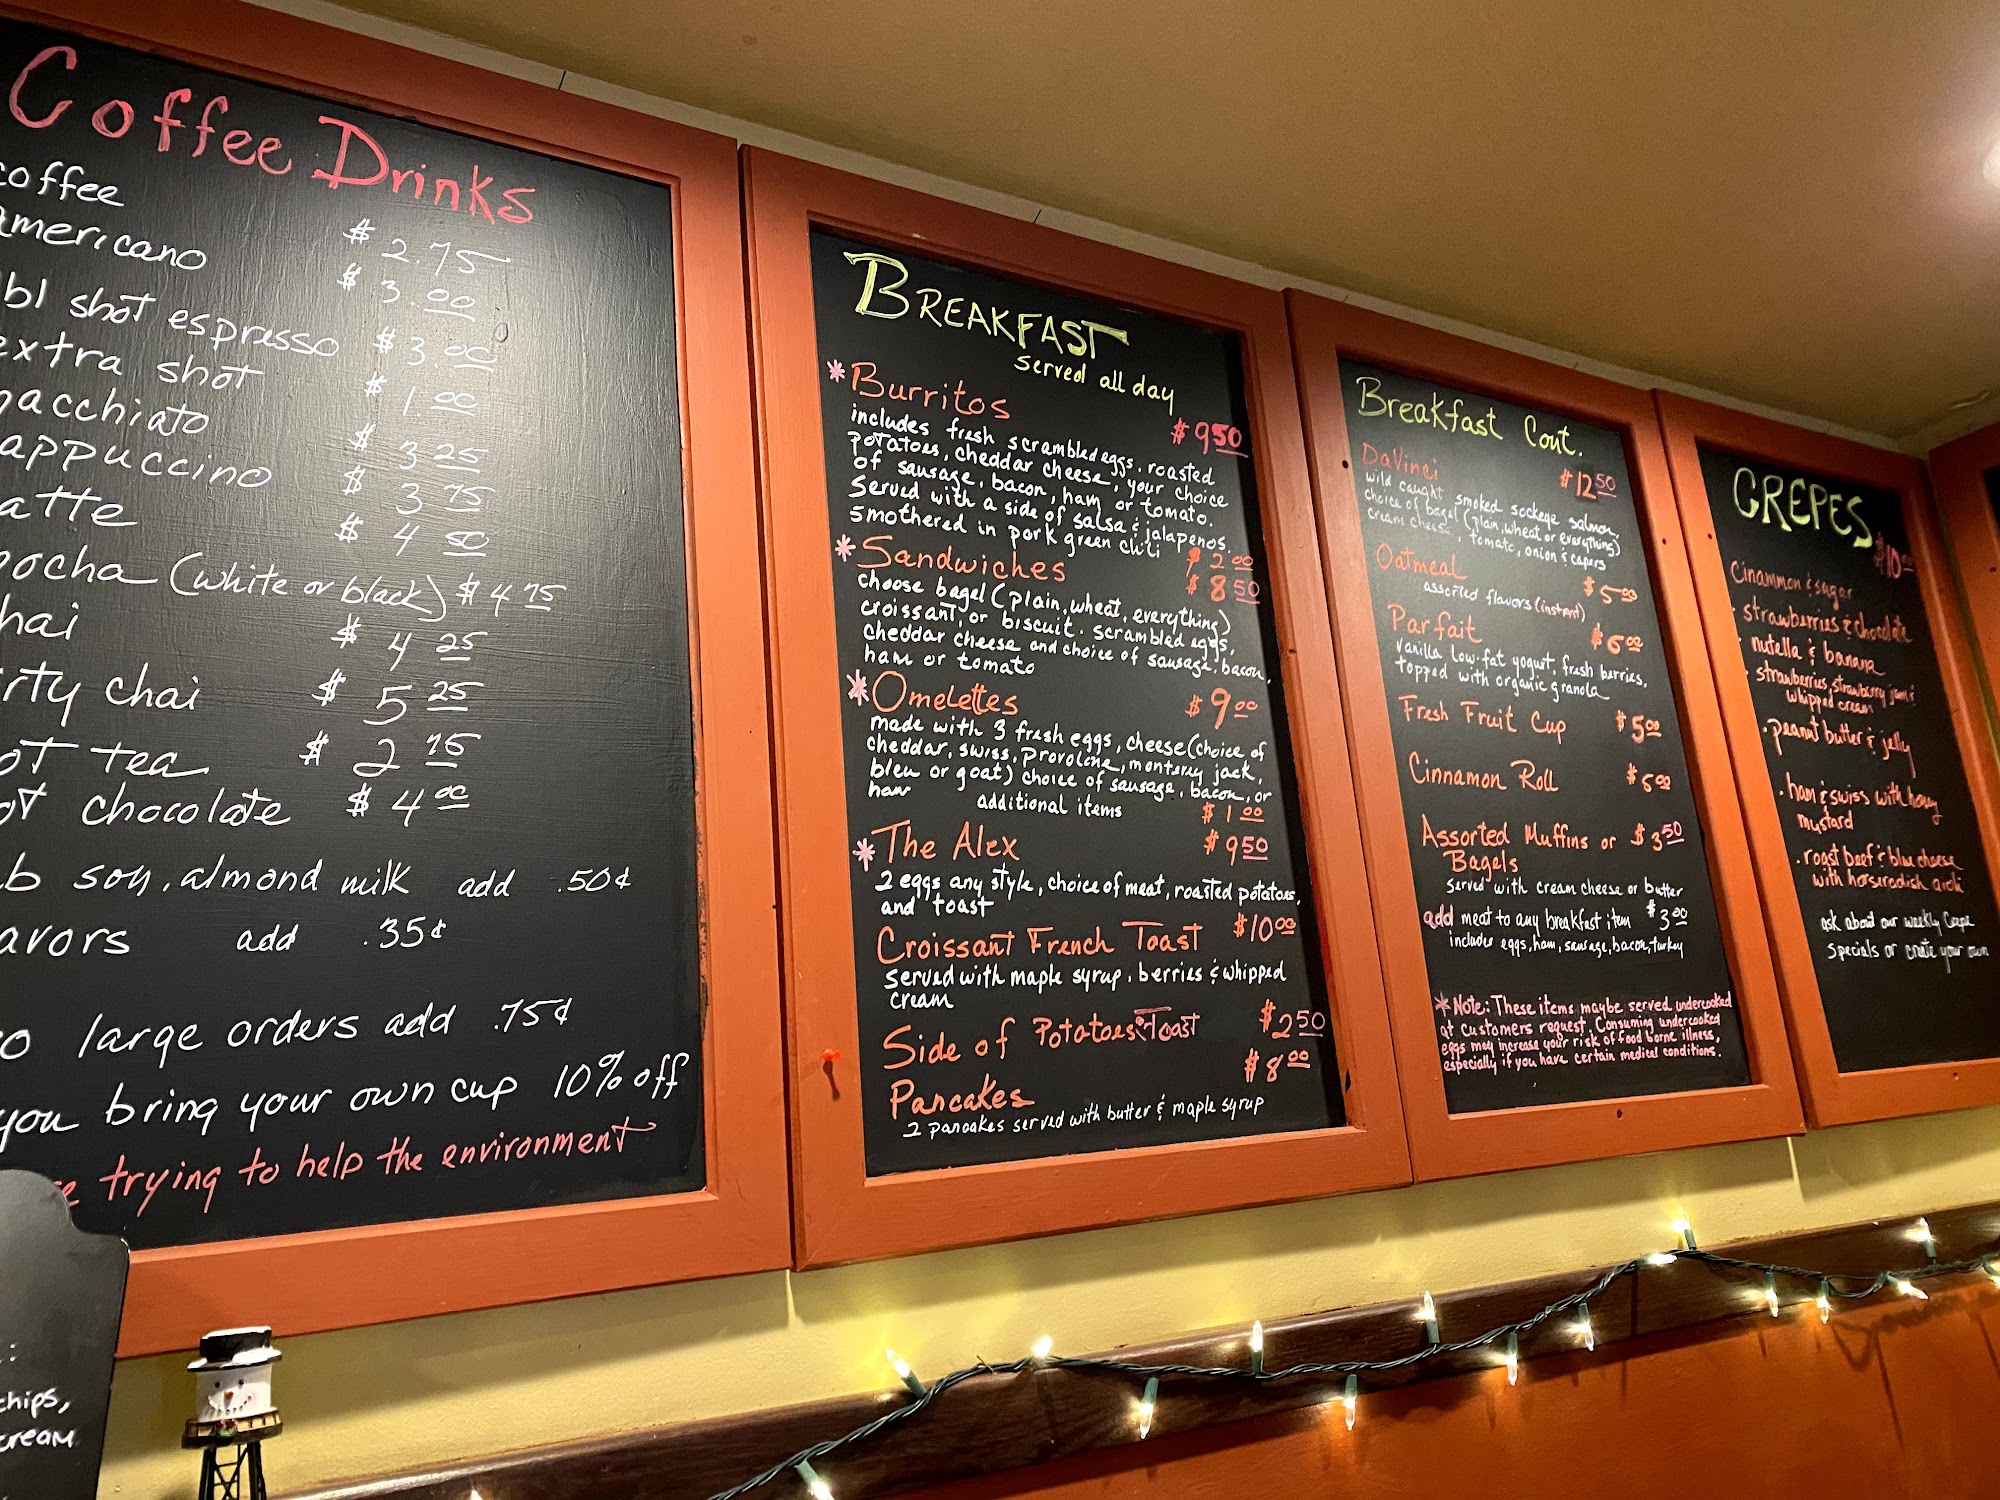 Coffee Drinks
coffee $2.75
americano $3.00
bl shot espresso $3.00
extra shot $1.00
acchiato $3.25
appuccino $3.75
atte $4.50
ocha (white or black) $4.75
hai $4.25
irty chai $5.25
ot tea $2.75
ot chocolate $4.00
b soy, almond milk add .50¢
avors add .35¢
large orders add .75¢
you bring your own cup 10% off
trying to help the environment
chips,
cream
BREAKFAST
served all day
*Burritos $9.50
includes fresh scrambled eggs, roasted
potatoes, cheddar cheese, your choice
of sausage, bacon, ham or tomato.
Served with a side of salsa & jalapenos.
Smothered in pork green chili $2.00
*Sandwiches $8.50
choose bagel (plain, wheat, everything)
croissant, or biscuit. scrambled eggs,
cheddar cheese and choice of sausage, bacon,
ham or tomato
*Omelettes $9.00
made with 3 fresh eggs, cheese (choice of
cheddar, swiss, provolone, monterey jack,
bleu or goat) choice of sausage, bacon, or
ham additional items $1.00
*The Alex $9.50
2 eggs any style, choice of meat, roasted potatoes,
and toast
Croissant French Toast $10.00
served with maple syrup, berries & whipped
cream
Side of Potatoes Toast $2.50
Pancakes $8.00
2 pancakes served with butter & maple syrup
Breakfast Cont.
DaVinci $12.50
wild caught smoked sockeye salmon,
choice of bagel (plain, wheat or everything)
cream cheese, tomato, onion & capers
Oatmeal $5.00
assorted flavors (instant)
Parfait $6.00
vanilla low-fat yogurt, fresh berries,
topped with organic granola
Fresh Fruit Cup $5.00
Cinnamon Roll $5.00
Assorted Muffins or $3.50
Bagels
served with cream cheese or butter
add meat to any breakfast item $3.00
includes eggs, ham, sausage, bacon, turkey
*Note: These items maybe served undercooked
at customers request. Consuming undercooked
eggs may increase your risk of food borne illness,
especially if you have certain medical conditions.
CREPES $10.00
Cinammon & sugar
· strawberries & chocolate
· nutella & banana
· strawberries, strawberry jam &
whipped cream
· peanut butter & jelly
· ham & swiss with honey
mustard
· roast beef & blue cheese
with horseradish aioli
ask about our weekly Crepe
specials or create your own